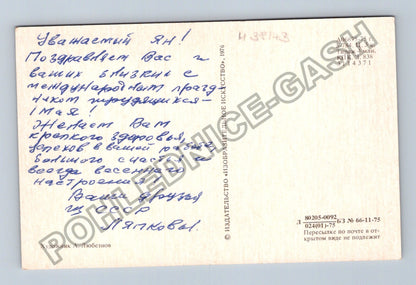 Уважаемый Ян!
Поздравляем Вас и
ваших близких с
международным празд-
ником трудящихся -
1 Мая!
Желаем Вам
крепкого здоровья,
успехов в вашей работе,
большого счастья и
всегда весеннего
настроения.
Ваши друзья
из СССР
Ляпковы.
Художник А. Любезнов
© ИЗДАТЕЛЬСТВО «ИЗОБРАЗИТЕЛЬНОЕ ИСКУССТВО». 1976
Д 80205-0092 Б/З № 66-11-75
024(01)-75
Пересылке по почте в от-
крытом виде не подлежит
POHLEDNICE-GASH